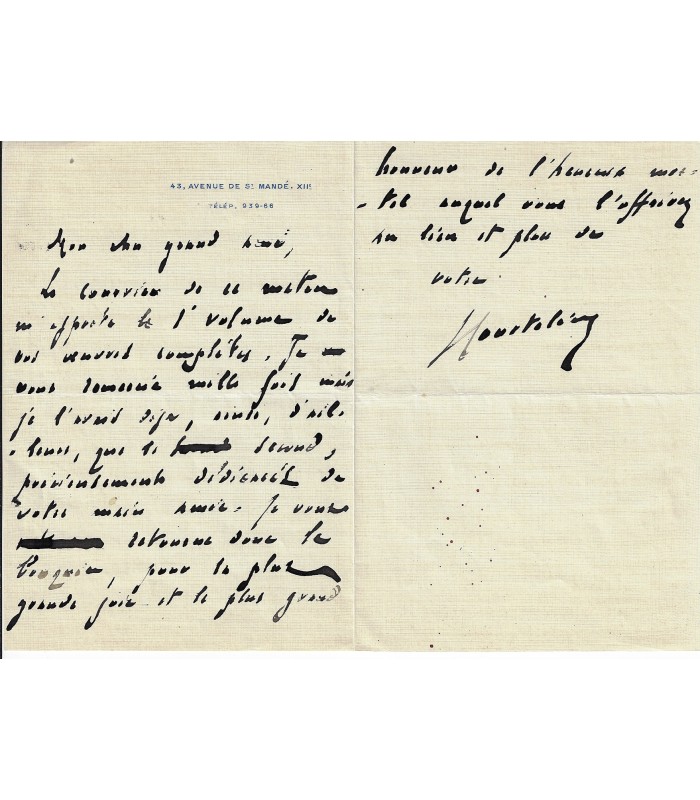 43, AVENUE DE St MANDÉ. XIIe
TÉLÉP. 939-66
Mon cher grand ami,
Le courrier de ce matin
m'apporte le 1r volume de
vos œuvres complètes. Je
vous remercie mille fois mais
je l'avais déjà, ainsi, d'ail-
-leurs, que le second,
précieusement dédicacés de
votre main amie. Je vous
retourne donc le
bouquin, pour la plus
grande joie et le plus grand
honneur de l'heureux mor-
-tel auquel vous l'offrirez
au lieu et place de
votre